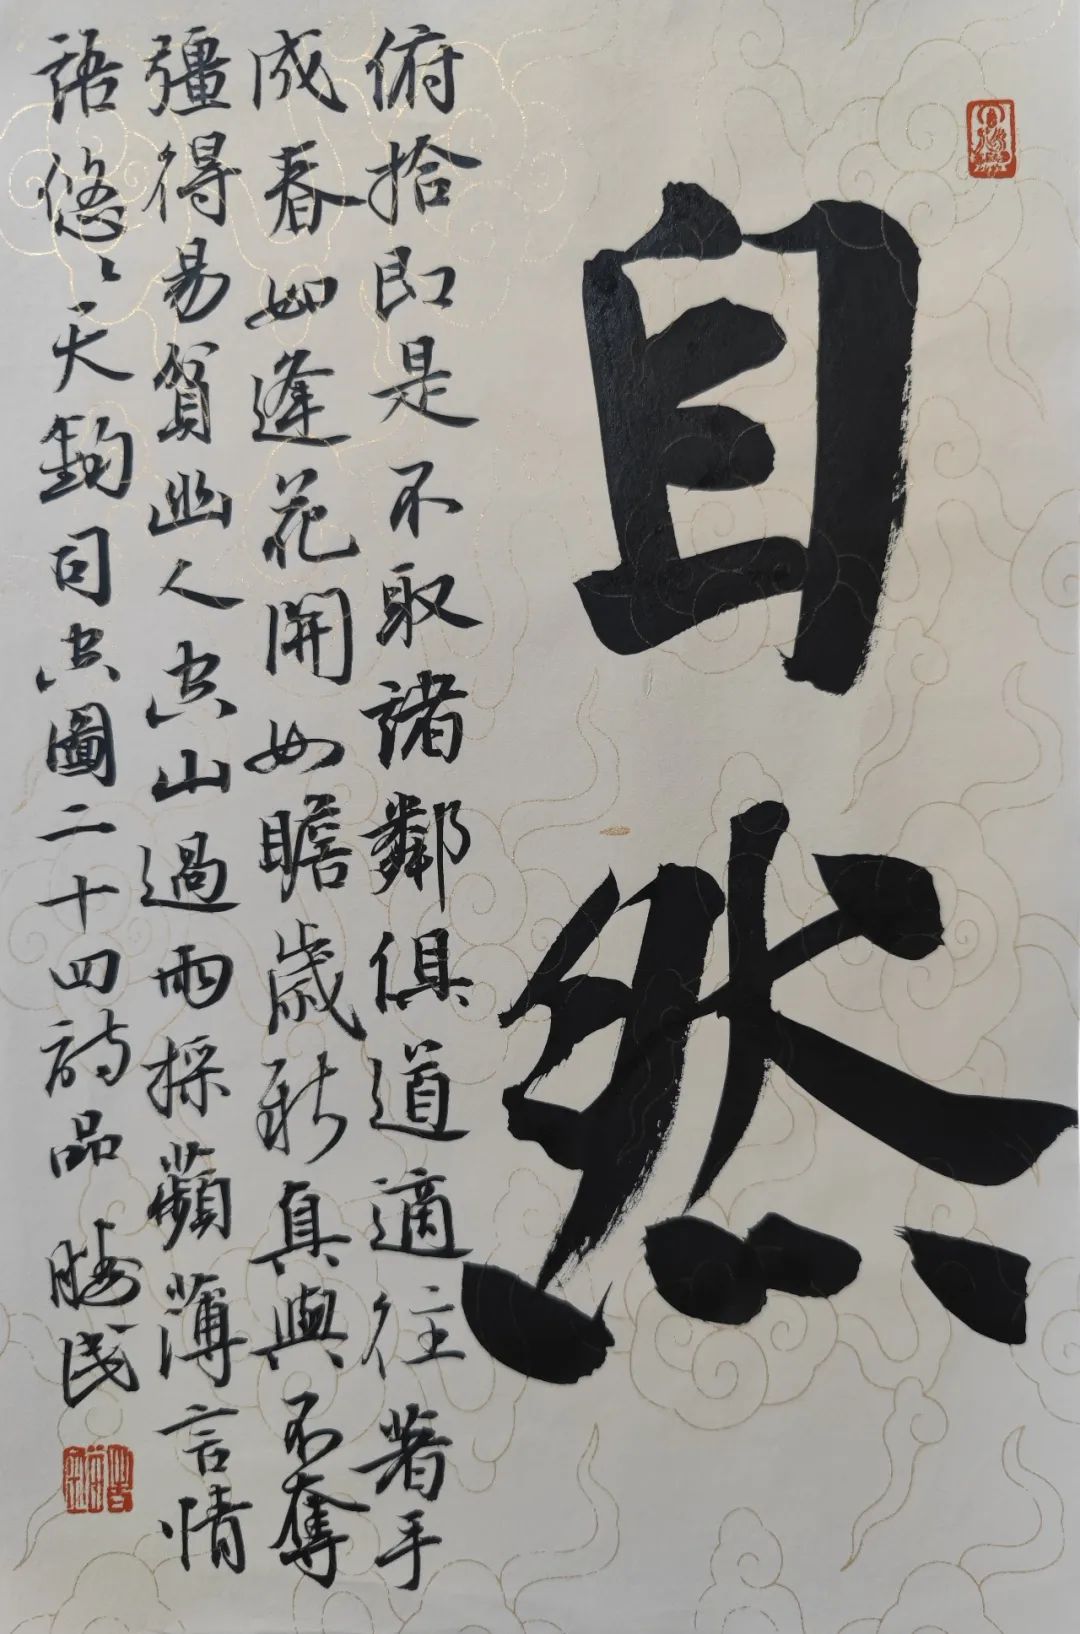 自然
俯拾即是不取諸鄰俱道適往著手
成春如逢花開如瞻歲新真與不奪
彊得易貧幽人空山過雨採蘋薄言情
語悠〻天鈞司空圖二十四詩品